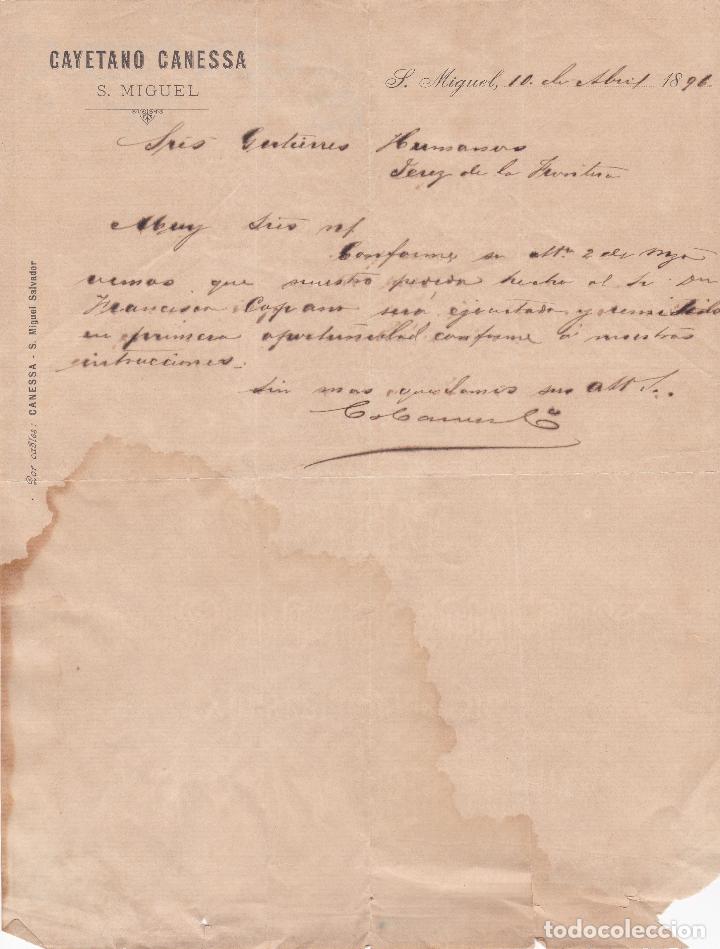 CAYETANO CANESSA
S. MIGUEL
S. Miguel, 10 de Abril 1896
Sres Gutierres Hermanos
Jerez de la Frontera
Muy Sres
Conforme su 2 de
vemos que nuestro pedido hecho al Sr Dn
Francisco será ejecutado y remitido
en primera oportunidad conforme á nuestras
intrucciones.
Sin mas quedamos sus
Por cables: CANESSA - S. Miguel Salvador
todocoleccion